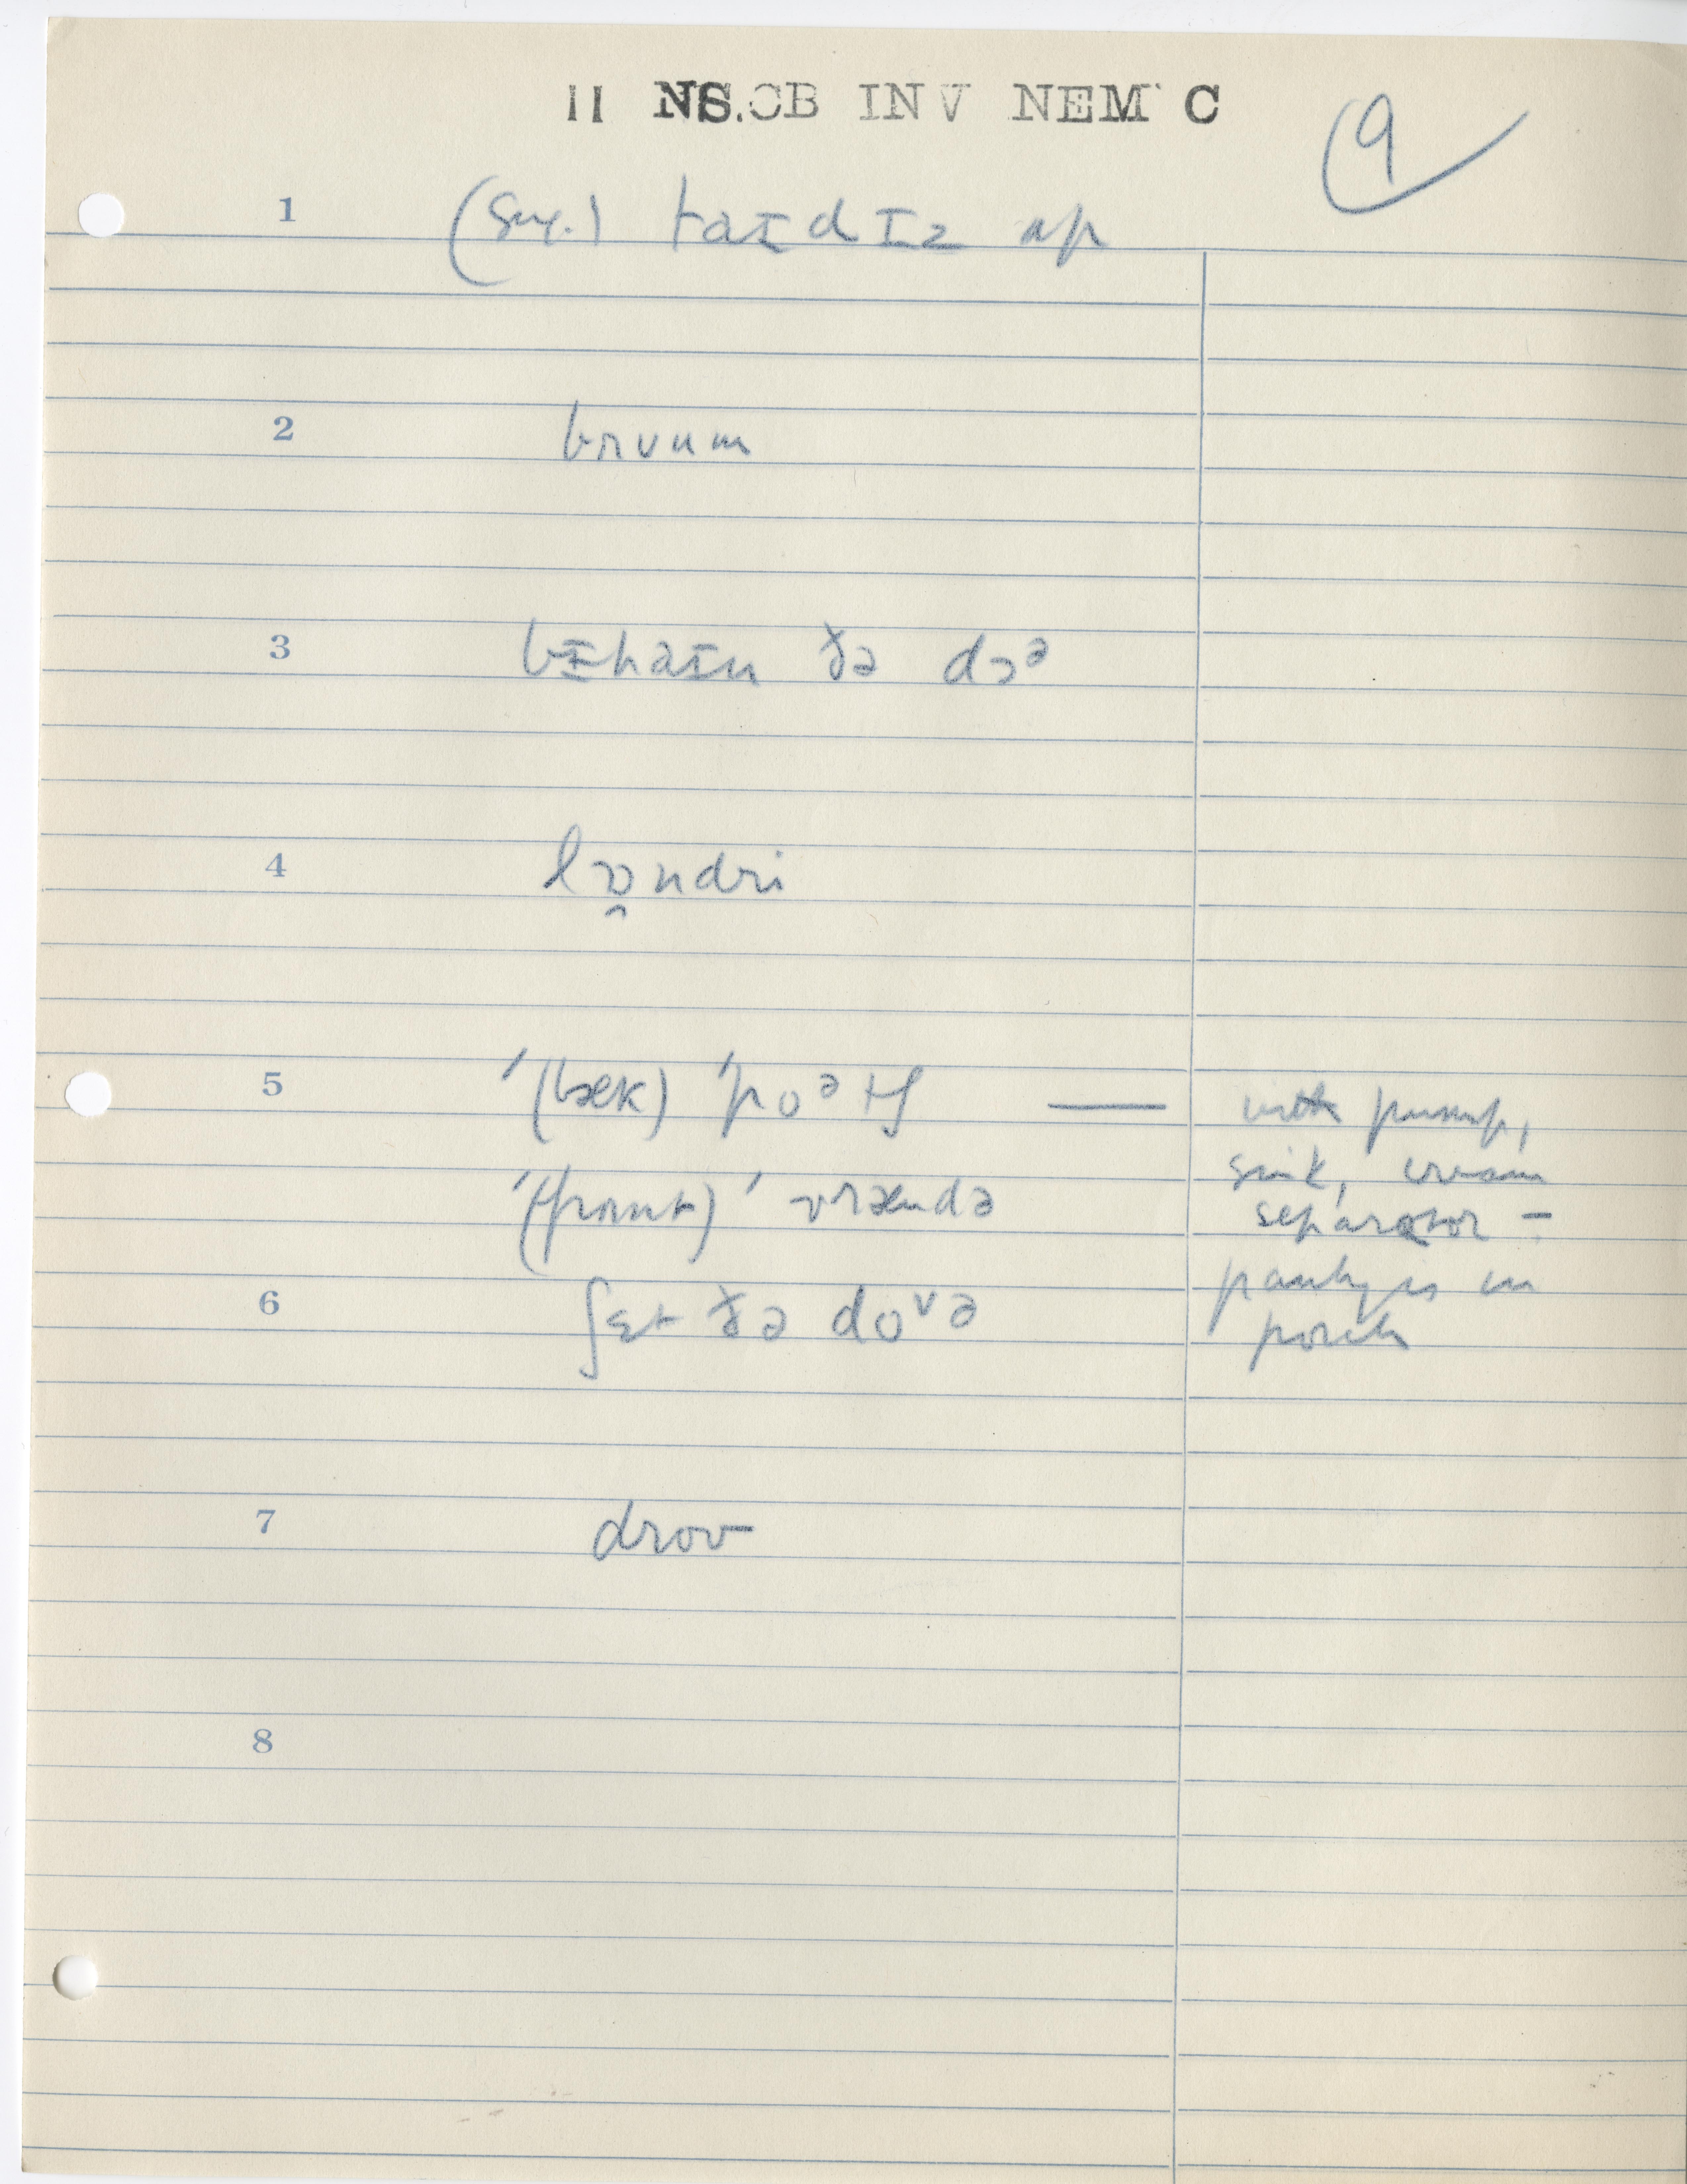 11 NS.CB INV NEM C
9
1 (sug.) taɪdɪz ʌp
2 brʊum
3 bɪhaɪn ðə dɔᵊ
4 lɒ̯ndri
5 ˈ(bæk) ˈpoᵊtʃ — with pump,
sink, cream
ˈ(frɒnt) ˈvrændə
separator –
pantry is in
6 ʃɛt ðə doᵛə
porch
7 drov
8